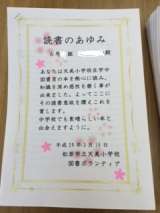 読書のあゆみ
殿
あなたは天美小学校在学中
図書室の本を熱心に読み
知識を深め感性を磨く事が
出来ました。よってここに
その読書意欲を讃えこれを
賞します。
中学校でも素晴らしい本と
出会えますように。
平成28年3月18日
松原市立天美小学校
図書ボランティア